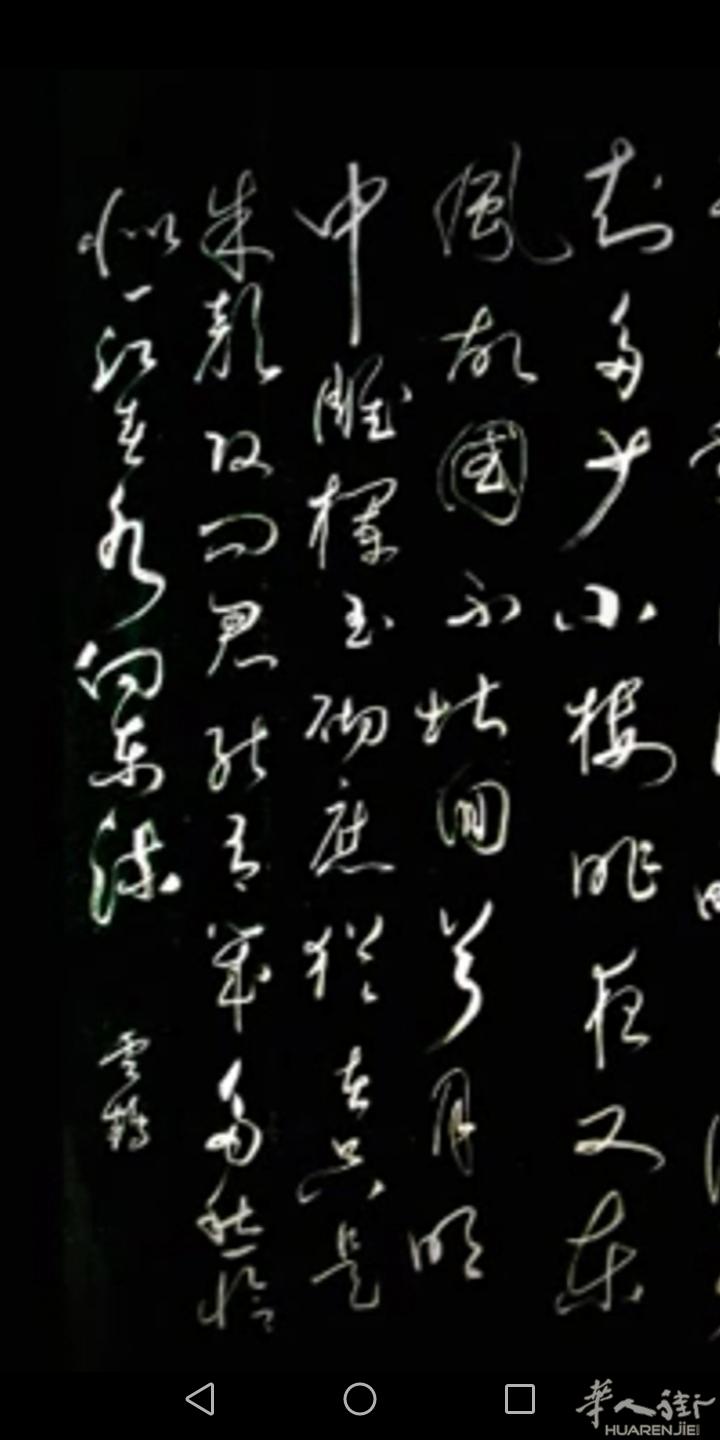 知多少小樓昨夜又东
風故國不堪回首月明
中雕欄玉砌應猶在只是
朱颜改问君能有幾多愁恰
似一江春水向东流
雲鶴
華人街
HUARENJIE